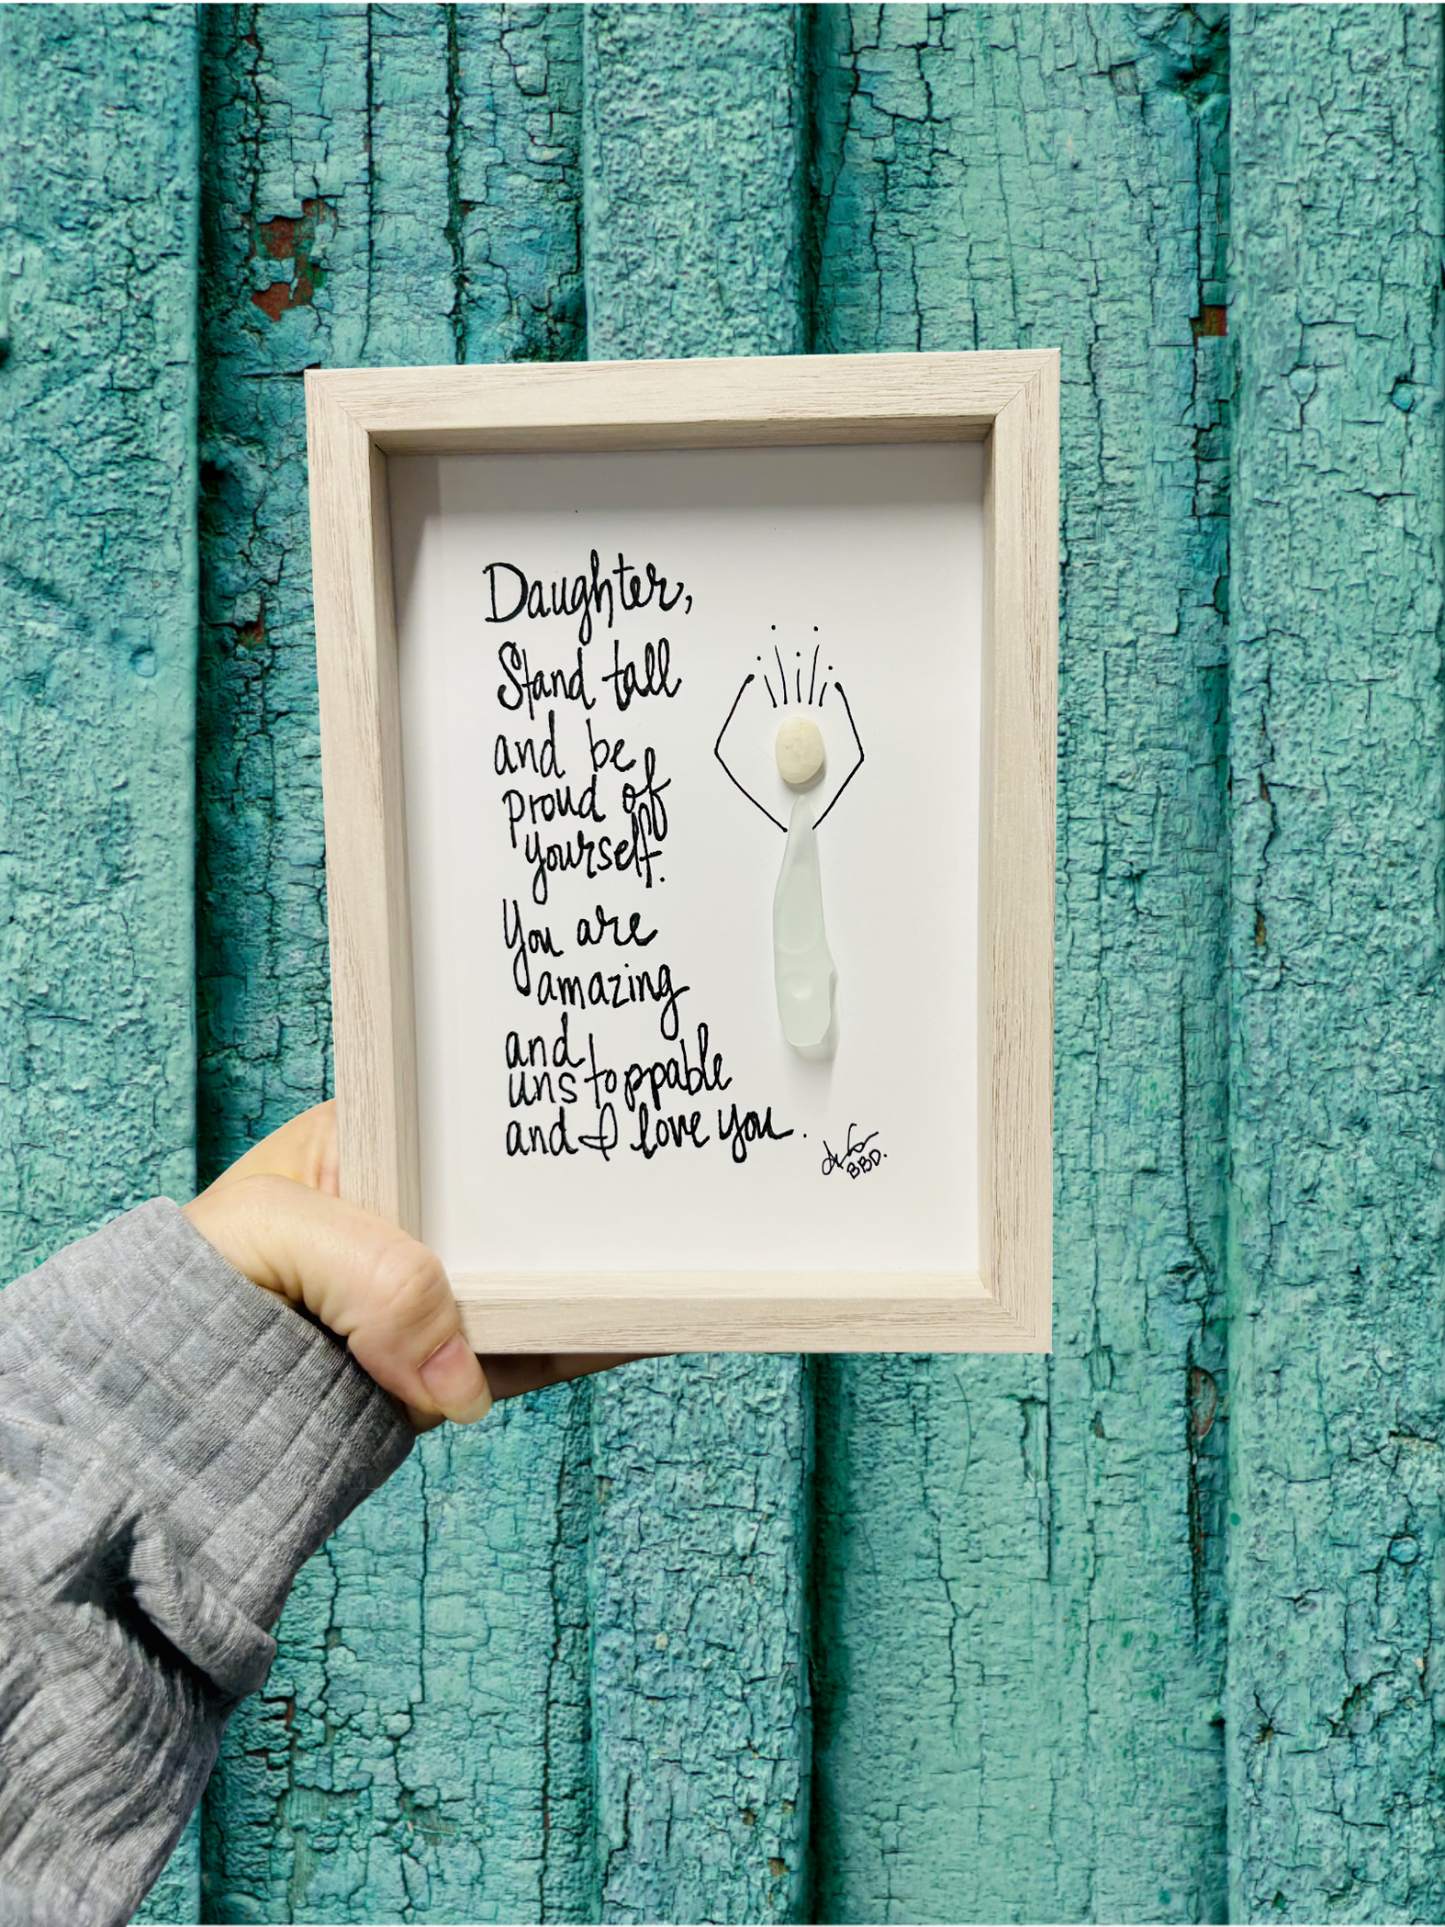 Daughter,
Stand tall
and be
proud of
yourself.
You are
amazing
and
unstoppable
and I love you.
BBD.